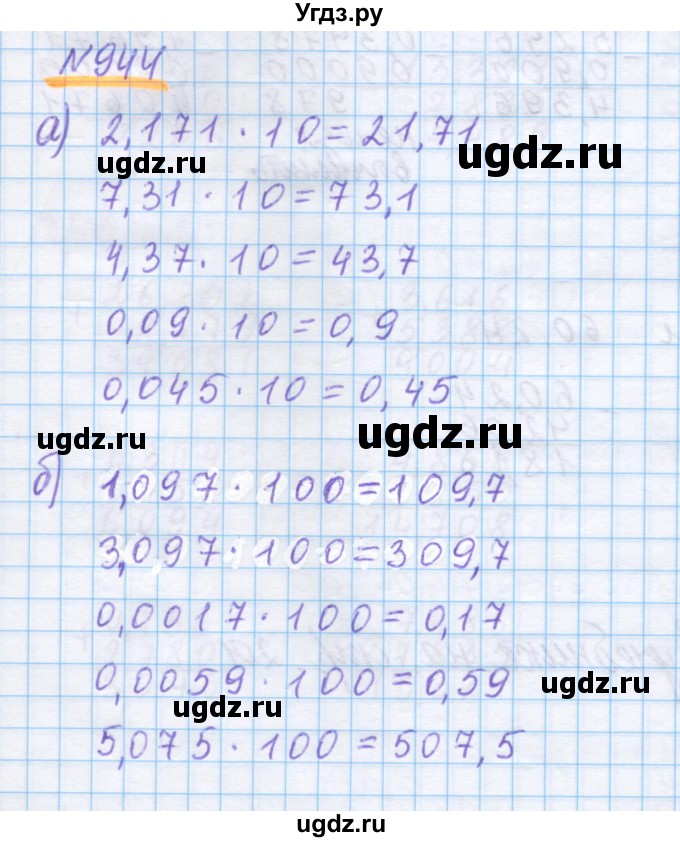 Угдз.ру
№944
а) 2,171 · 10 = 21,71
ugdz.ru
ugdz.ru
7,31 · 10 = 73,1
4,37 · 10 = 43,7
0,09 · 10 = 0,9
0,045 · 10 = 0,45
ugdz.ru
ugdz.ru
б) 1,097 · 100 = 109,7
3,097 · 100 = 309,7
0,0017 · 100 = 0,17
0,0059 · 100 = 0,59
ugdz.ru
ugdz.ru
5,075 · 100 = 507,5
ugdz.ru